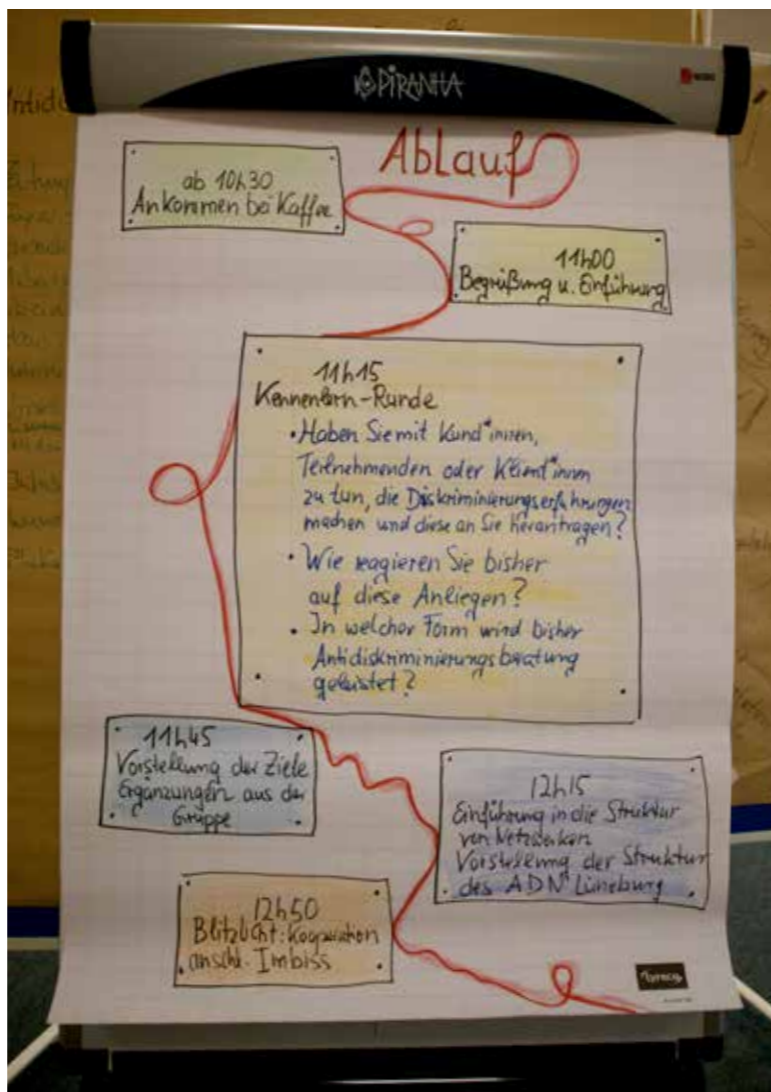 PIRANHA
Ablauf
ab 10h30
Ankommen bei Kaffee
11h00
Begrüßung u. Einführung
11h15
Kennenlern-Runde
• Haben Sie mit Kund*innen,
Teilnehmenden oder Klient*innen
zu tun, die Diskriminierungserfahrungen
machen und diese an Sie herantragen?
• Wie reagieren Sie bisher
auf diese Anliegen?
• In welcher Form wird bisher
Antidiskriminierungsberatung
geleistet?
11h45
Vorstellung der Ziele
Ergänzungen aus der
Gruppe
12h15
Einführung in die Struktur
von Netzwerken
Vorstellung der Struktur
des ADN Lüneburg
12h50
Blitzlicht: Kooperation
anschl. Imbiss